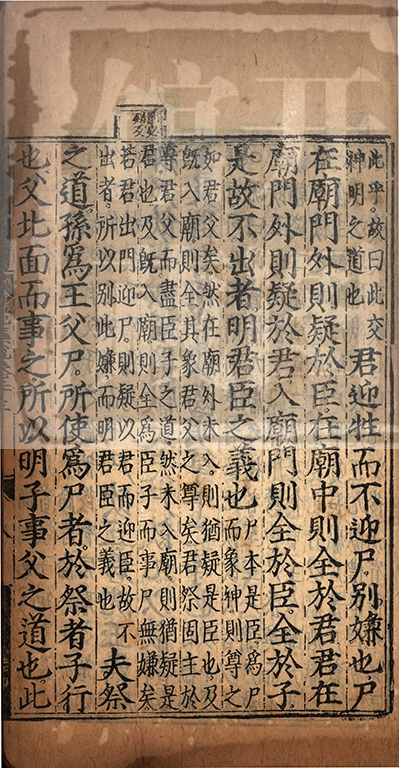 此乎故曰此交
神明之道也
君迎牲而不迎尸。别嫌也。尸
在廟門外則疑於臣。在廟中則全於君。君在
廟門外則疑於君。入廟門則全於臣。全於子。
是故不出者。明君臣之義也
尸本是臣爲尸
而象神則尊之
如君父矣然在廟外未入則猶疑是臣也及
旣入廟則全其象君父之尊矣君祭固主於
尊君父而盡臣子之道然未入廟則猶疑是
君也及旣入廟則全爲臣子而事尸無嫌矣
若君出門迎尸則疑以君而迎臣故不
出者所以别此嫌而明君臣之義也
夫祭
之道。孫爲王父尸。所使爲尸者。於祭者子行
也。父北面而事之。所以明子事父之道也。此